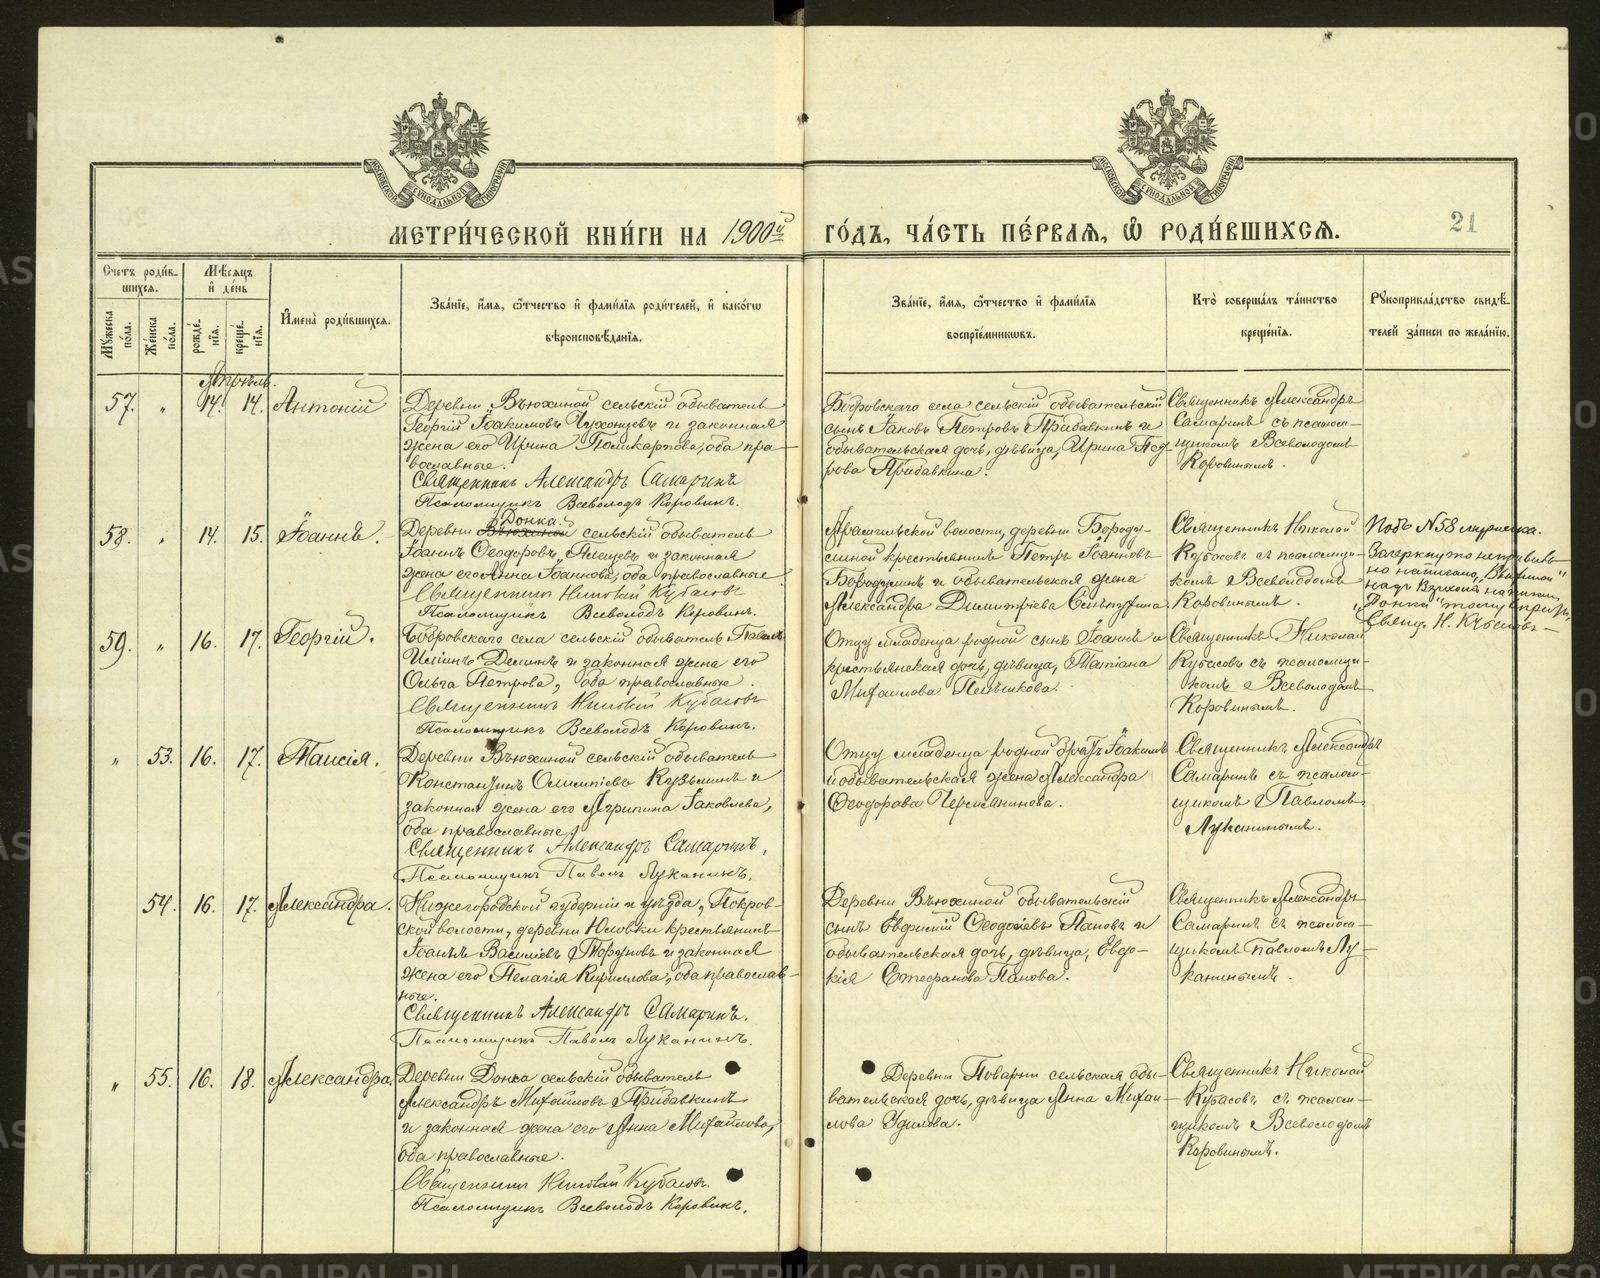 МОСКОВСКОЙ СѴНОДАЛЬНОЙ ТИПОГРАФІИ
МОСКОВСКОЙ СѴНОДАЛЬНОЙ ТИПОГРАФІИ
МЕТРИ́ЧЕСКОЙ КНИ́ГИ НА 1900й ГО́ДЪ, ЧА́СТЬ ПЕ́РВАѦ, Ѽ РОДИ́ВШИХСѦ.
21
Счетъ роди́вшихсѧ.
Мꙋжеска по́ла.
Же́нска по́ла.
Мѣ́сѧцъ и҆ де́нь
рожде́нїѧ.
креще́нїѧ.
И҆мена̀ роди́вшихсѧ.
Зва́нїе, и҆́мѧ, ѻ҆́тчество и҆ фами́лїѧ роди́телей, и҆ како́гѡ
вѣроисповѣ́данїѧ.
Зва́нїе, и҆́мѧ, ѻ҆́тчество и҆ фами́лїѧ
воспрїе́мникѡвъ.
Кто̀ соверша́лъ та́инство
креще́нїѧ.
Рꙋкоприкла́дство свидѣ́-
телей за́писи по жела́нїю.
Апрѣль.
57. " 14. 14. Антоній
Деревни Вьюхиной сельскій обыватель
Георгій Іоакимовъ Чухонцевъ и законная
жена его Ирина Поликарпова, оба пра-
вославные.
Священникъ Александръ Самаринъ
Псаломщикъ Всеволодъ Коровинъ.
Бобровскаго села сельскій обывательскій
сынъ Іаковъ Петровъ Прибавкинъ и
обывательская дочь, дѣвица, Ирина Пед-
рова Прибавкина.
Священникъ Александръ
Самаринъ съ псалом-
щикомъ Всеволодомъ
Коровинымъ.
58. " 14. 15. Іоаннъ.
Донка
Деревни Вьюхиной сельскій обыватель
Іоаннъ Ѳеодоровъ Алещевъ и законная
жена его Анна Іоаннова, оба православные
Священникъ Николай Кубасовъ
Псаломщикъ Всеволодъ Коровинъ.
Арамильской волости, деревни Бороду-
линой крестьянинъ Петръ Іоанновъ
Бородулинъ и обывательская жена
Александра Димитріева
Священникъ Николай
Кубасовъ съ псаломщи-
комъ Всеволодомъ
Коровинымъ.
Подъ N58
Зачеркнуто неправиль
но написано „Вьюхиной"
надъ
„Донка"
Свящ. Н. Кубасовъ
59. " 16. 17. Георгій.
Бобровскаго села сельскій обыватель Павелъ
Иліинъ Деминъ и законная жена его
Ольга Петрова, оба православные.
Священникъ Николай Кубасовъ
Псаломщикъ Всеволодъ Коровинъ.
Отцу младенца родной сынъ Іоаннъ и
крестьянская дочь, дѣвица, Татіана
Михаилова Пельникова.
Священникъ Николай
Кубасовъ съ псаломщи-
комъ Всеволодомъ
Коровинымъ.
" 53. 16. 17. Таисія.
Деревни Вьюхиной сельскій обыватель
Константинъ Олимпіевъ Кузьминъ и
законная жена его Агрипина Іаковлева,
оба православные.
Священникъ Александръ Самаринъ,
Псаломщикъ Павелъ Луканинъ.
Отцу младенца родной братъ Іоакимъ
и обывательская жена Александра
Ѳеодорова Чермянинова.
Священникъ Александръ
Самаринъ съ псалом-
щикомъ Павломъ
Луканинымъ.
54. 16. 17. Александра.
Нижегородской губерніи и уѣзда, Покров-
ской волости, деревни Юловки крестьянинъ
Іоаннъ Василіевъ Торуновъ и законная
жена его Пелагія Кириллова, оба православ-
ные.
Священникъ Александръ Самаринъ.
Псаломщикъ Павелъ Луканинъ.
Деревни Вьюхиной обывательскій
сынъ Евфимій Ѳеодосіевъ Пановъ и
обывательская дочь, дѣвица, Евдо-
кія Стефанова Панова.
Священникъ Александръ
Самаринъ съ псалом-
щикомъ Павломъ Лу-
канинымъ.
" 55. 16. 18. Александра.
Деревни Донка сельскій обыватель
Александръ Михаиловъ Прибавкинъ
и законная жена его Анна Михаилова,
оба православные.
Священникъ Николай Кубасовъ.
Псаломщикъ Всеволодъ Коровинъ.
Деревни Поварни сельская обы-
вательская дочь, дѣвица Анна Михаи-
лова Удилова.
Священникъ Николай
Кубасовъ съ псалом-
щикомъ Всеволодомъ
Коровинымъ.
METRIKI.GASO-URAL.RU